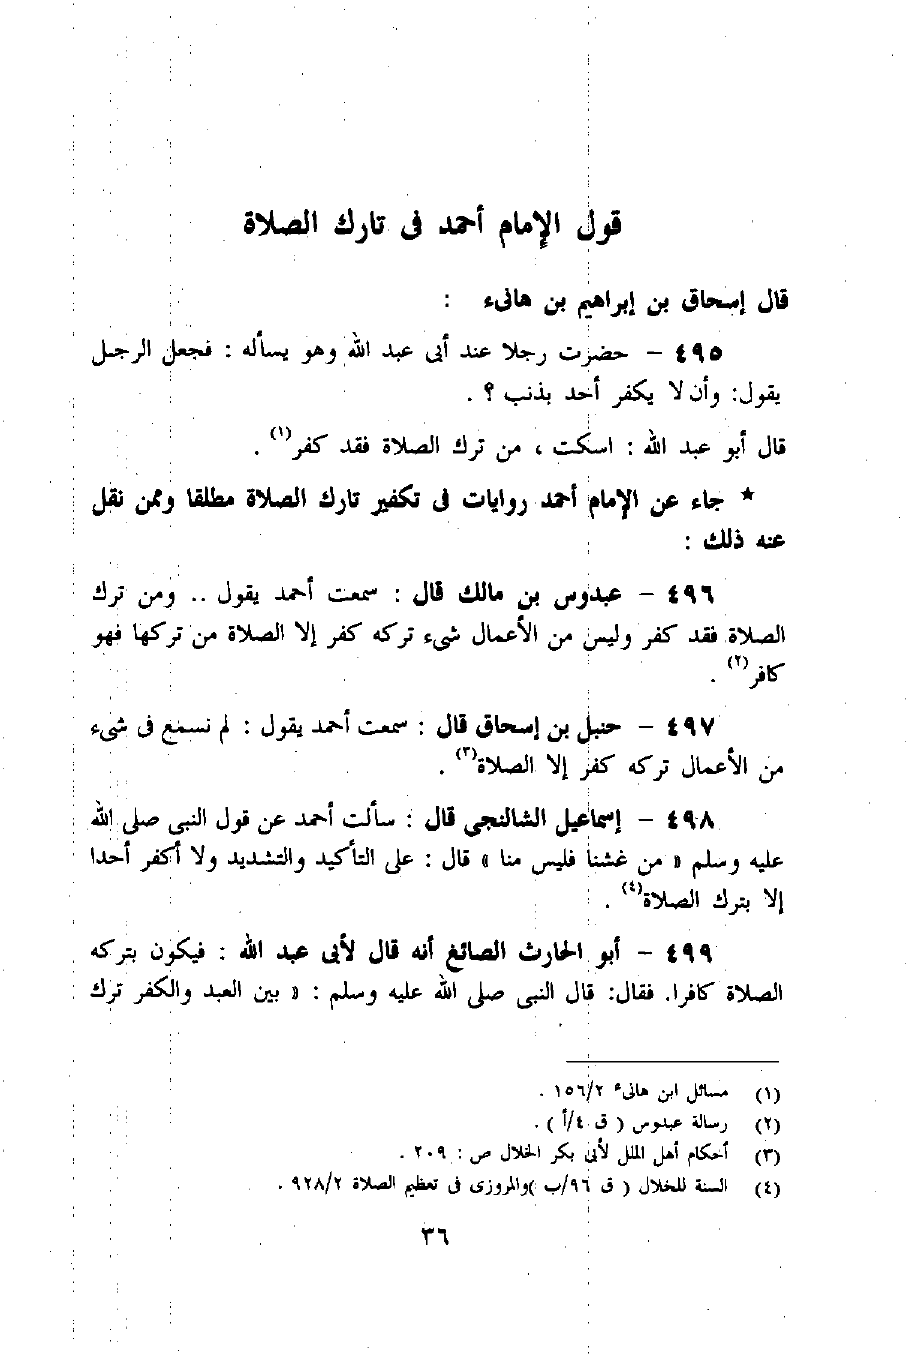 قول الإمام أحمد فى تارك الصلاة
قال إسحاق بن إبراهيم بن هانىء :
٤٩٥ – حضرت رجلا عند أبى عبد الله وهو يسأله : فجعل الرجل
يقول: وأن لا يكفر أحد بذنب ؟ .
قال أبو عبد الله : اسكت ، من ترك الصلاة فقد كفر(١) .
* جاء عن الإمام أحمد روايات فى تكفير تارك الصلاة مطلقا وممن نقل
عنه ذلك :
٤٩٦ – عبدوس بن مالك قال : سمعت أحمد يقول .. ومن ترك
الصلاة فقد كفر وليس من الأعمال شىء تركه كفر إلا الصلاة من تركها فهو
كافر(٢) .
٤٩٧ – حنبل بن إسحاق قال : سمعت أحمد يقول : لم نسمع فى شىء
من الأعمال تركه كفر إلا الصلاة(٣) .
٤٩٨ – إسماعيل الشالنجى قال : سألت أحمد عن قول النبى صلى الله
عليه وسلم « من غشنا فليس منا » قال : على التأكيد والتشديد ولا أكفر أحدا
إلا بترك الصلاة(٤) .
٤٩٩ – أبو الحارث الصائغ أنه قال لأبى عبد الله : فيكون بتركه
الصلاة كافرا. فقال: قال النبى صلى الله عليه وسلم : « بين العبد والكفر ترك
(١) مسائل ابن هانىء ١٥٦/٢ .
(٢) رسالة عبدوس ( ق ٤/أ ) .
(٣) أحكام أهل الملل لأبى بكر الخلال ص : ٢٠٩ .
(٤) السنة للخلال ( ق ٩٦/ب )والمروزى فى تعظيم الصلاة ٩٢٨/٢ .
٣٦